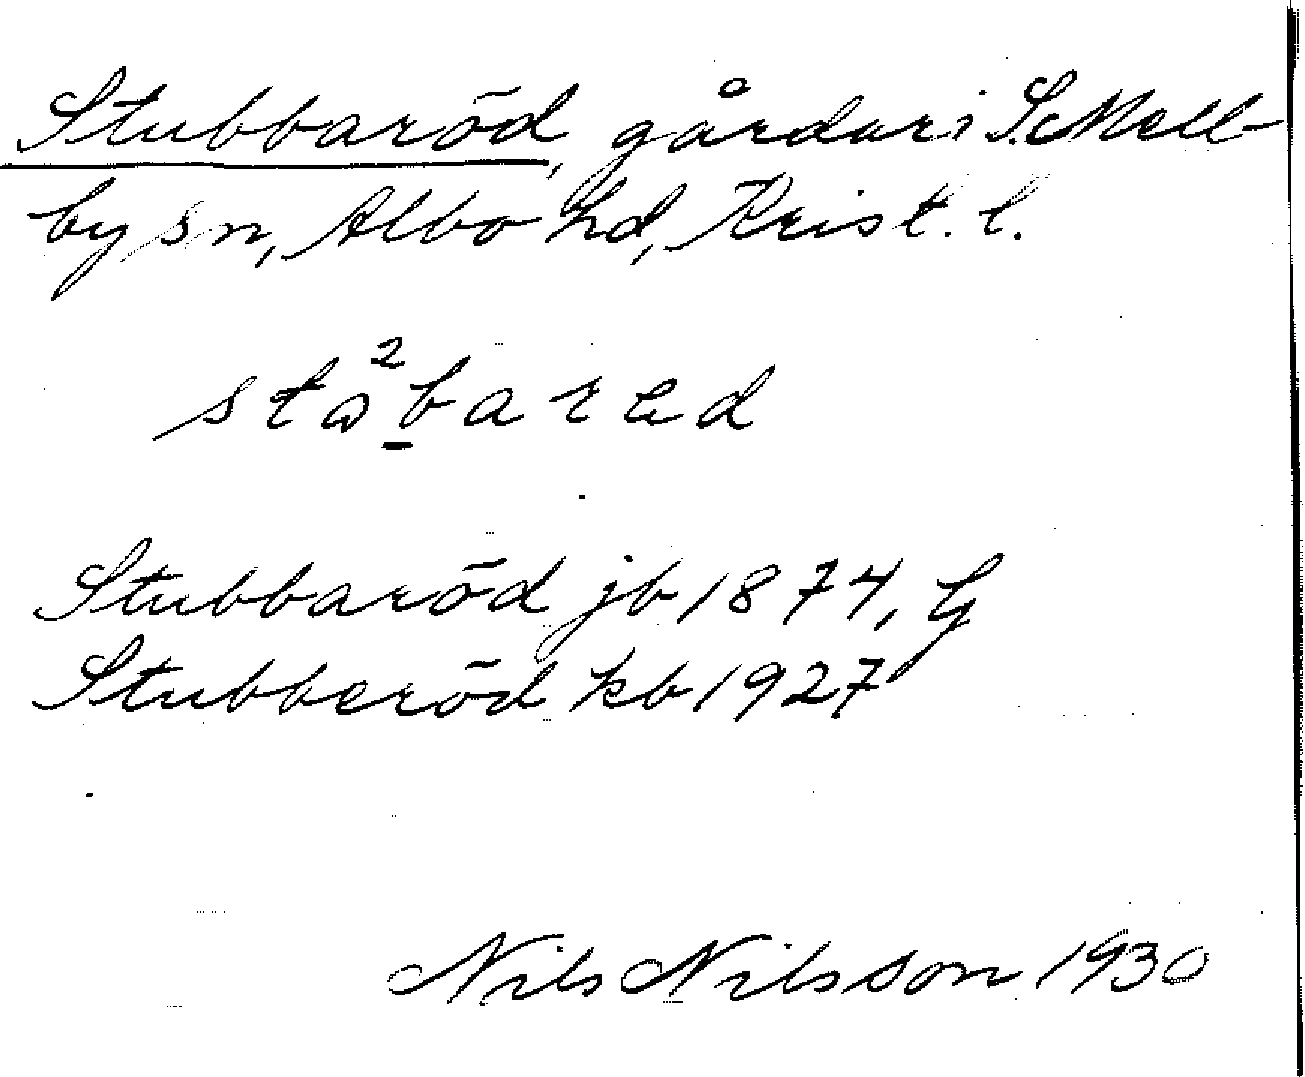 Stubbaröd, gårdar i S. Mell-
by sn, Albo hd, Krist. l.
Stubbaröd jb 1874, G
Stubberöd kb 1927
Nils Nilsson 1930